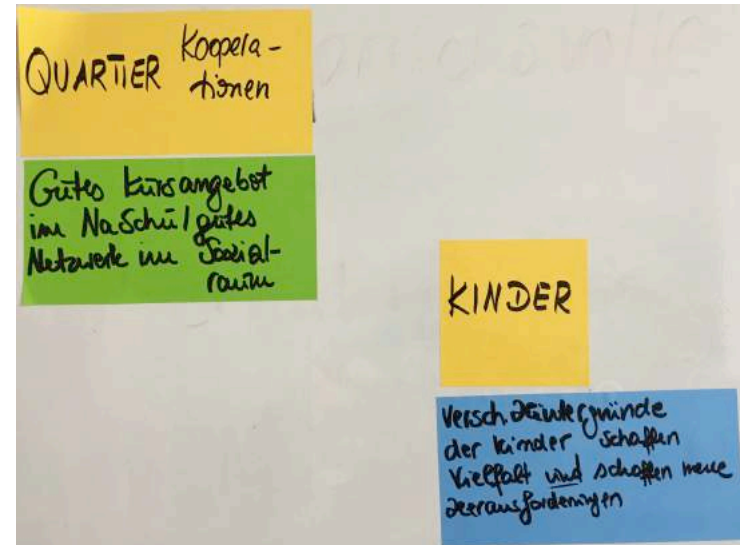 QUARTIER Koopera-
tionen
Gutes Kursangebot
im NaSchu / gutes
Netzwerk im Sozial-
raum
KINDER
versch. Hintergründe
der Kinder schaffen
Vielfalt und schaffen neue
Herausforderungen